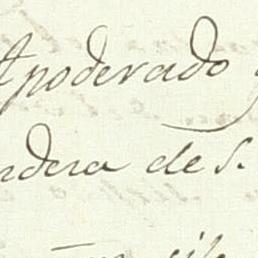 Apoderado
ndera de S.